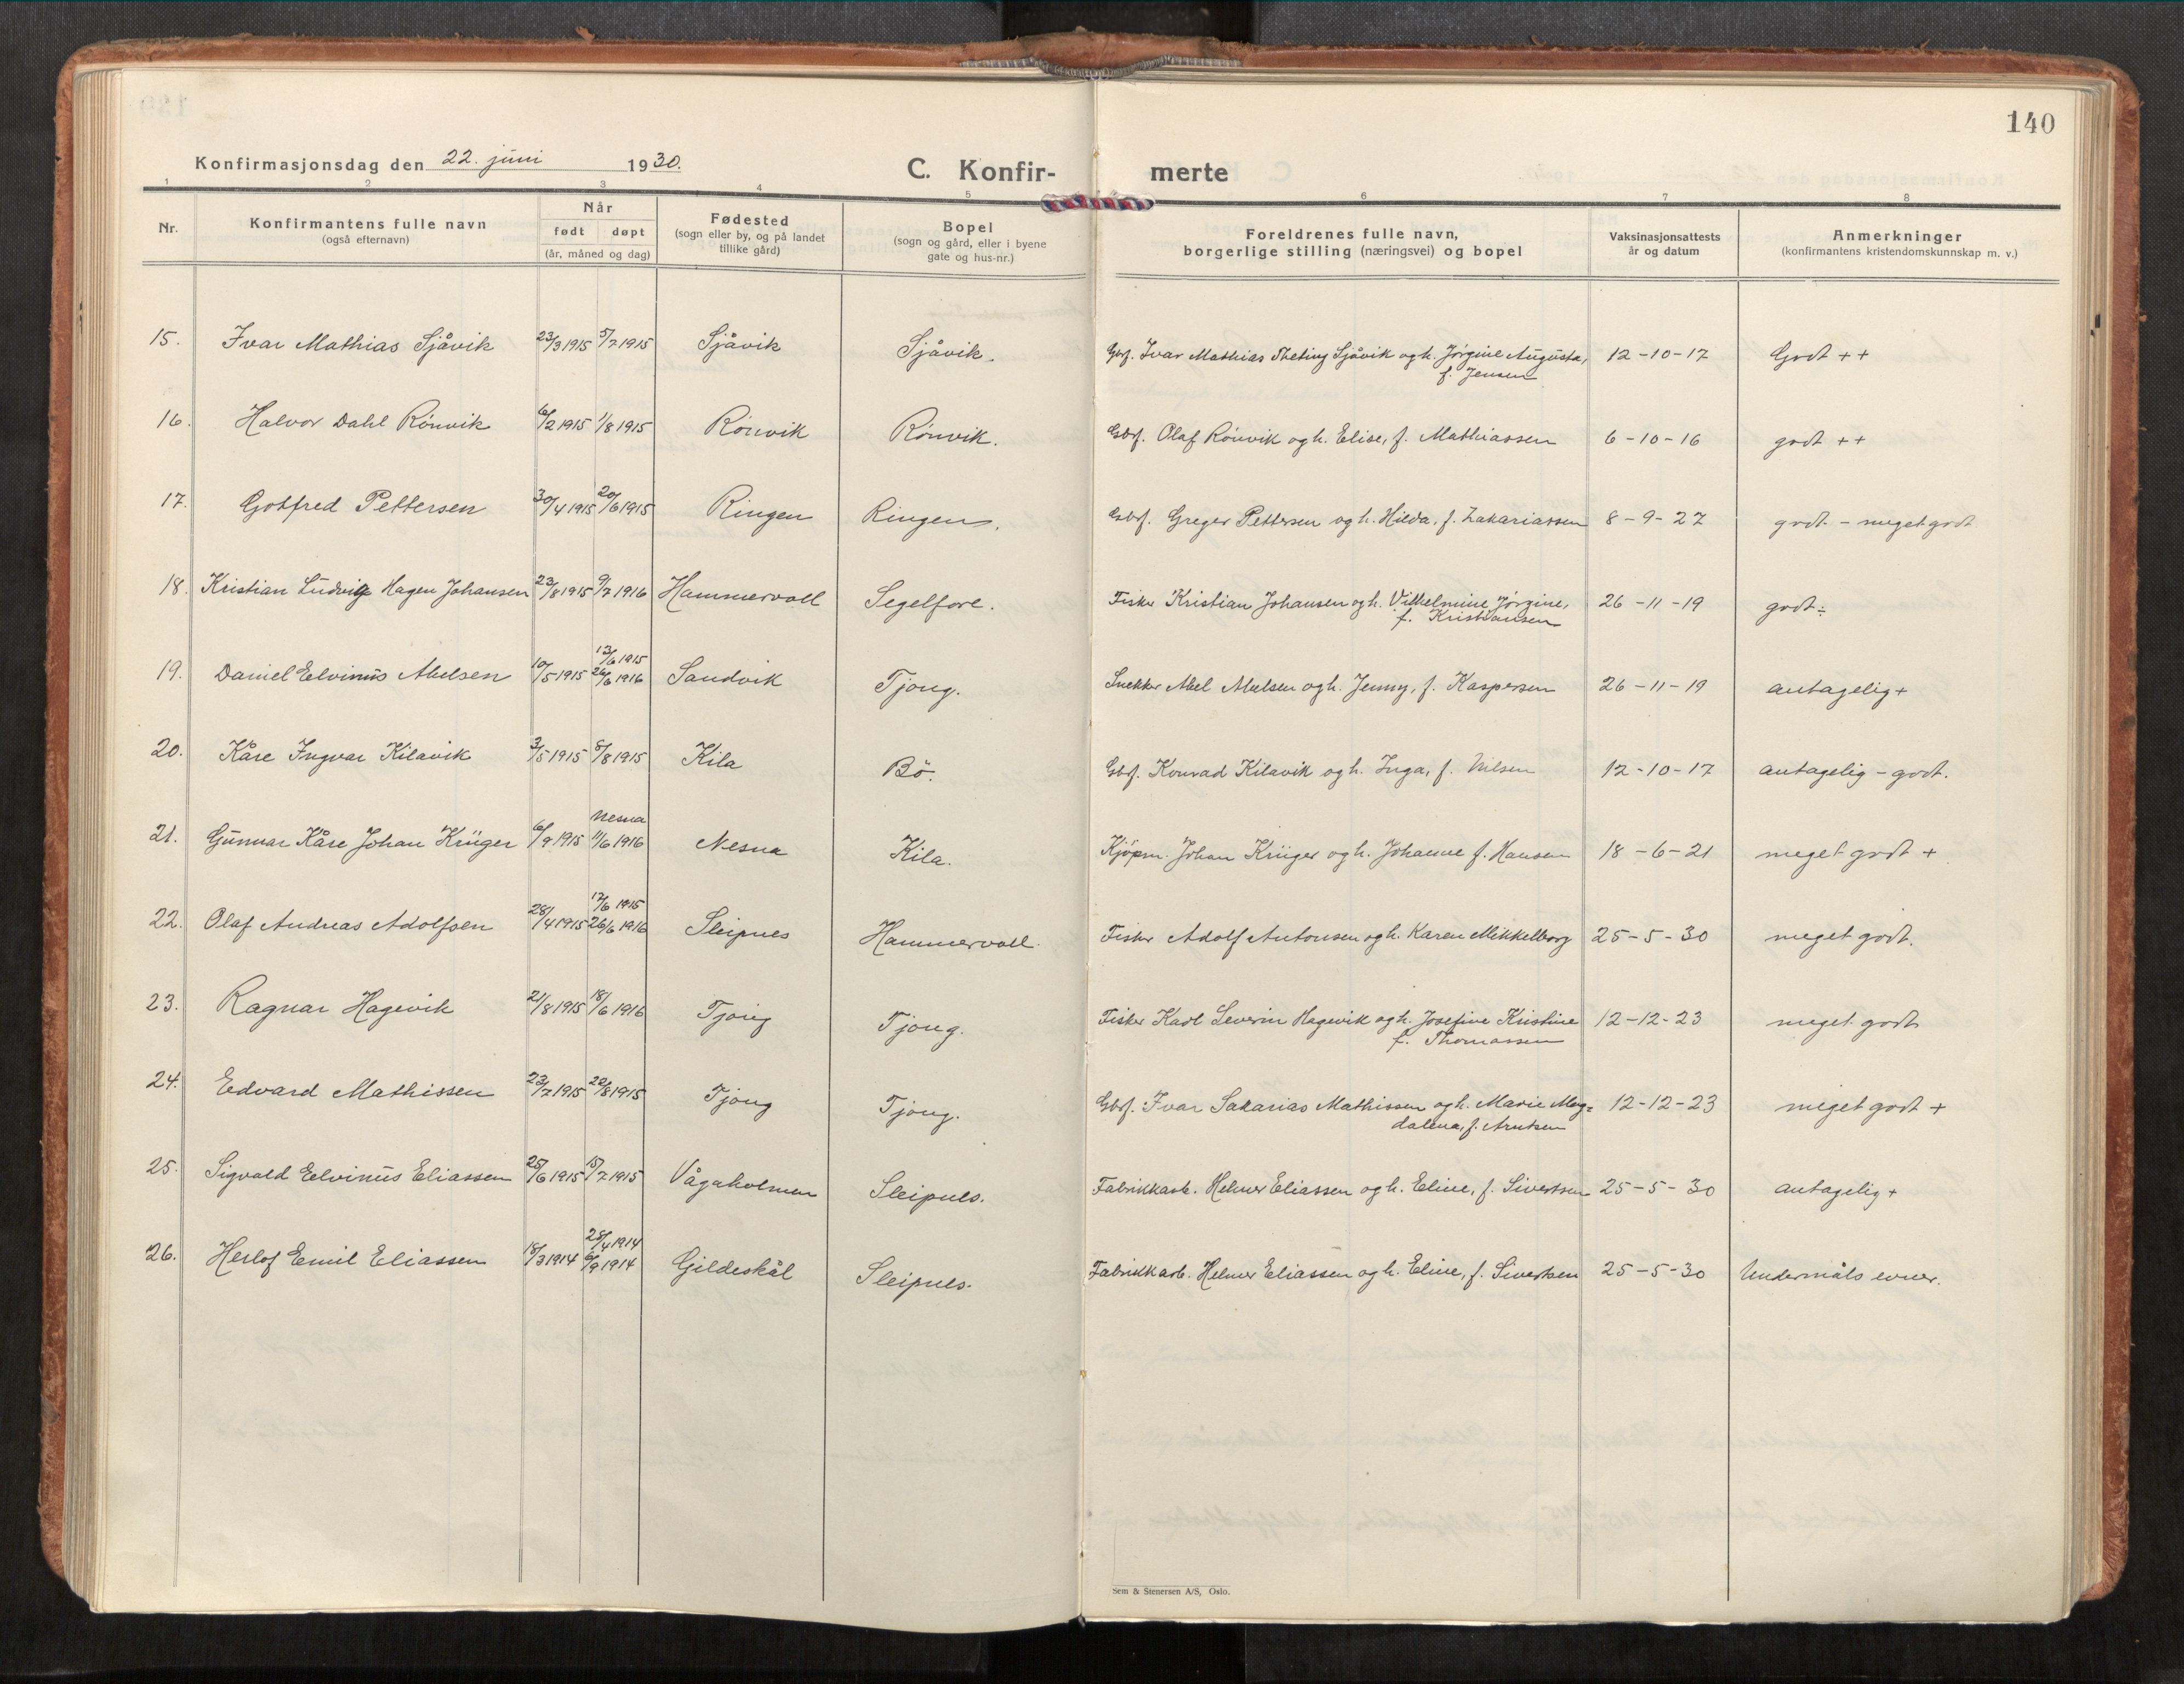 140
Konfirmasjonsdag den 22. juni 1930.
C. Konfir- merte
1 2 3 4 5 6 7 8
Nr.
Konfirmantens fulle navn
(også efternavn)
Når
født døpt
(år, måned og dag)
Fødested
(sogn eller by, og på landet
tillike gård)
Bopel
(sogn og gård, eller i byene
gate og hus-nr.)
Foreldrenes fulle navn,
borgerlige stilling (næringsvei) og bopel
Vaksinasjonsattests
år og datum
Anmerkninger
(konfirmantens kristendomskunnskap m. v.)
15. Ivar Mathias Sjåvik 23/3 1915 5/7 1915 Sjåvik Sjåvik. Gbrf. Ivar Mathias Theting Sjåvik og h. Jørgine Augusta, 12-10-17 Godt ++
f. Jensen
16. Halvor Dahl Rönvik 6/2 1915 1/8 1915 Rönvik Rönvik. Gbrf. Olaf Rönvik og h. Elise, f. Mathiassen 6-10-16 godt ++
17. Gotfred Pettersen 30/4 1915 20/6 1915 Ringen Ringen. Gbrf. Greger Pettersen og h. Hilda, f. Zakariassen 8-9-27 godt - meget godt
18. Kristian Ludvig Hagen Johansen 23/8 1915 9/7 1916 Hammervoll Segelfore. Fisker Kristian Johansen og h. Vilhelmine Jörgine, 26-11-19 godt÷
f. Kristiansen
13/6 1915
19. Daniel Elvinus Abelsen 10/5 1915 26/6 1916 Sandvik Tjong. Snekker Abel Abelsen og h. Jenny, f. Kaspersen 26-11-19 antagelig +
20. Kåre Ingvar Kilavik 3/5 1915 8/8 1915 Kila Bö. Gbrf. Konrad Kilavik og h. Inga, f. Nilsen 12-10-17 antagelig - godt.
Nesna
21. Gunnar Kåre Johan Krüger 6/9 1915 11/6 1916 Nesna Kila. Kjöpm. Johan Krüger og h. Johanne f. Hansen 18-6-21 meget godt +
17/6 1915
22. Olaf Andreas Adolfsen 28/4 1915 26/6 1916 Sleipnes Hammervoll. Fisker Adolf Antonsen og h. Karen Mikkelborg 25-5-30 meget godt.
23. Ragnar Hagevik 21/8 1915 18/6 1916 Tjong Tjong. Fisker Karl Severin Hagevik og h. Josefine Kristine 12-12-23 meget godt
f. Thomassen
24. Edvard Mathissen 23/7 1915 22/8 1915 Tjong Tjong. Gbrf. Ivar Sakarias Mathissen og h. Marie Mag= 12-12-23 meget godt +
dalena, f. Arntsen
25. Sigvald Elvinus Eliassen 25/6 1915 15/7 1915 Vågaholmen Sleipnes. Fabrikkarb. Helmer Eliassen og h. Eline, f. Sivertsen 25-5-30 antagelig +
28/4 1914
26. Herlof Emil Eliassen 18/3 1914 6/9 1914 Gildeskål Sleipnes. Fabrikkarb. Helmer Eliassen og h. Eline, f. Sivertsen 25-5-30 Undermåls evner.
Sem & Stenersen A/S, Oslo.